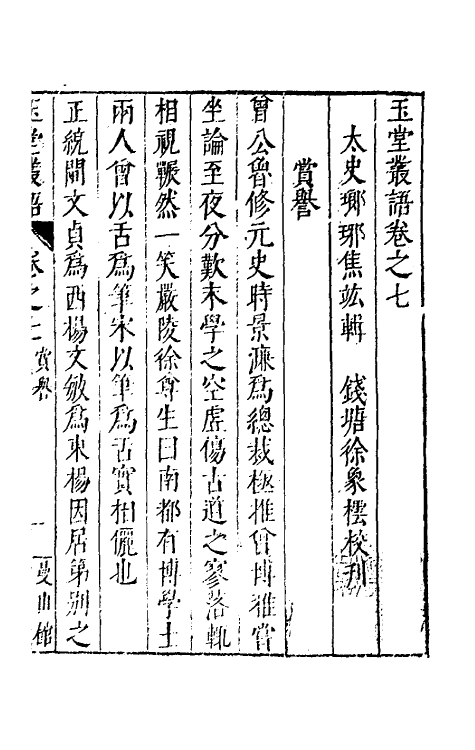 玉堂叢語卷之七
太史瑯琊焦竑輯　錢塘徐象橒校刊
賞譽
曾公魯修元史時景濂爲總裁極推曾博雅嘗
坐論至夜分歎末學之空虛傷古道之寥落輒
相視冁然一笑嚴陵徐尊生曰南都有博學士
兩人曾以舌爲筆宋以筆爲舌實相儷也
正統間文貞爲西楊文敏爲東楊因居第別之
玉堂叢語　卷之七　賞譽　一　曼山館